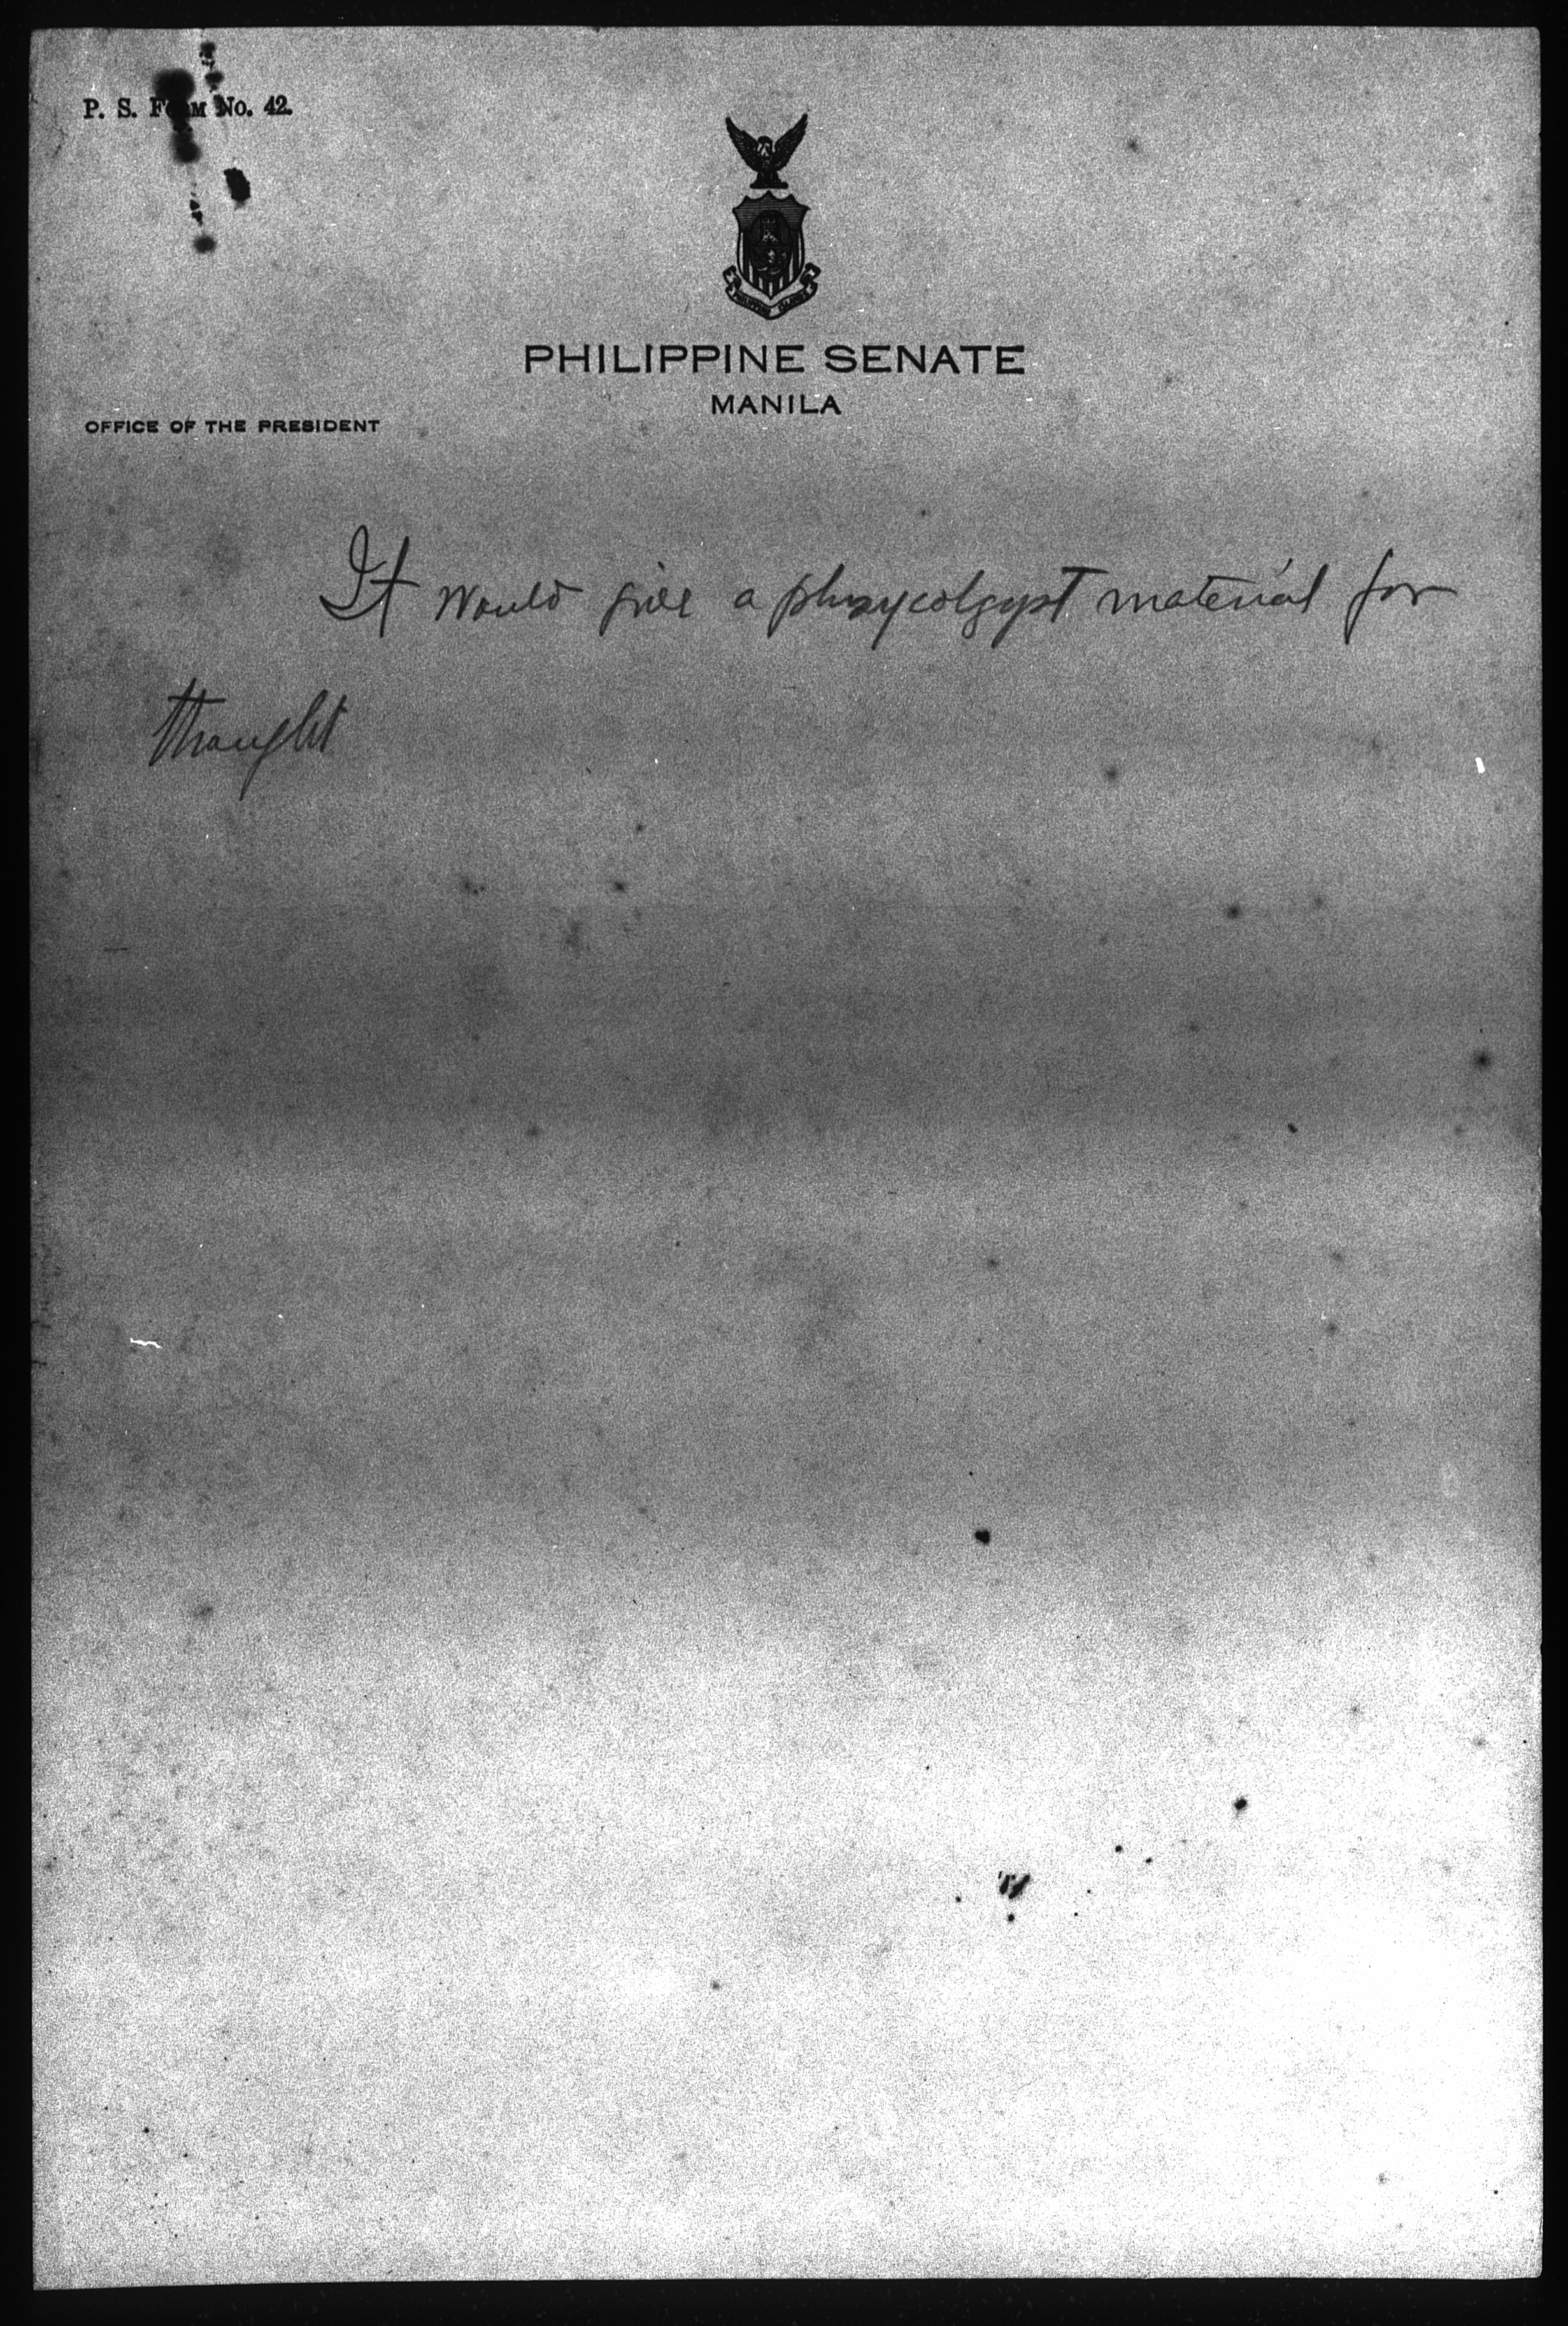 P. S. FORM NO. 42.
PHILIPPINE SENATE
MANILA
OFFICE OF THE PRESIDENT
It would give a material for
thought